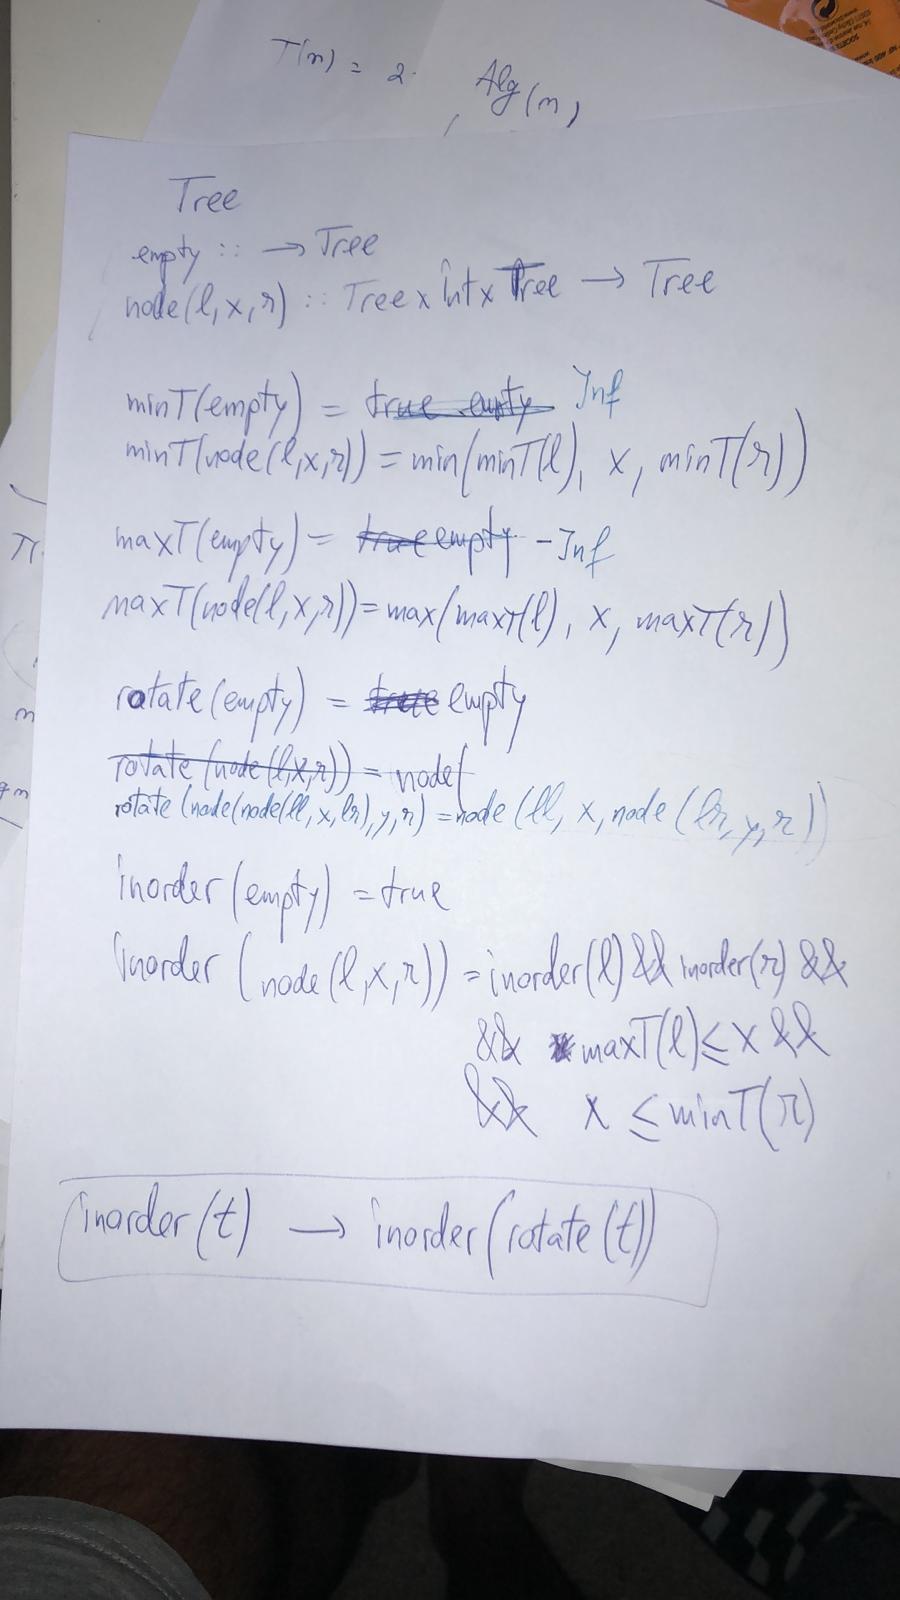 T(n) = 2.
Alg(n,
Tree
empty :: → Tree
node(l,x,r) :: Tree x Int x Tree → Tree
minT(empty) = true empty Inf
minT(node(l,x,r)) = min(minT(l), x, minT(r))
maxT(empty) = true empty -Inf
maxT(node(l,x,r)) = max(maxT(l), x, maxT(r))
rotate(empty) = true empty
rotate(node(l,x,r)) = node(
rotate(node(node(ll,x,lr),y,r) = node(ll, x, node(lr,y,r))
inorder(empty) = true
inorder(node(l,x,r)) = inorder(l) && inorder(r) &&
&& maxT(l) ≤ x &&
&& x ≤ minT(r)
inorder(t) → inorder(rotate(t))